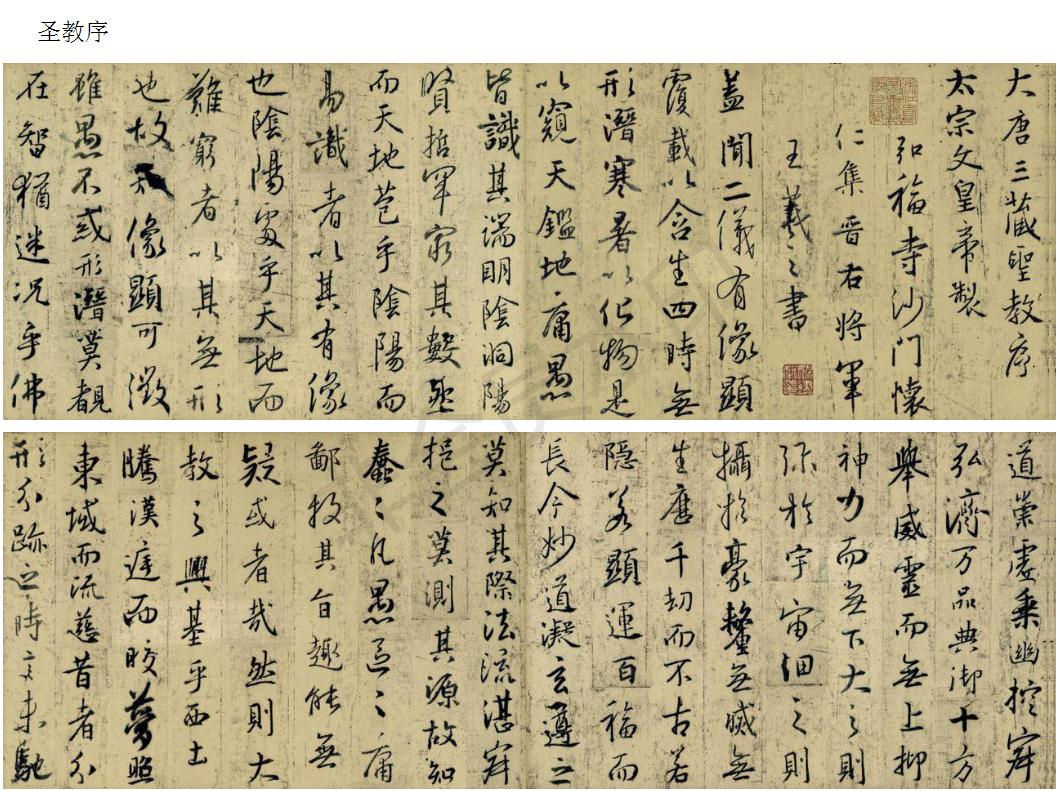 圣教序
大唐三藏聖教序
太宗文皇帝製
弘福寺沙門懷
仁集晉右將軍
王羲之書
蓋聞二儀有像顯
覆載以含生四時無
形潛寒暑以化物是
以窺天鑑地庸愚
皆識其端明陰洞陽
賢哲罕窮其數然
而天地苞乎陰陽而
易識者以其有像
也陰陽處乎天地而
難窮者以其無形
也故知像顯可徵
雖愚不惑形潛莫覩
在智猶迷況乎佛
道崇虛乘幽控寂
弘濟万品典御十方
舉威靈而無上抑
神力而無下大之則
弥於宇宙細之則
攝於豪釐無滅無
生歷千劫而不古若
隱若顯運百福而
長今妙道凝玄遵之
莫知其際法流湛寂
挹之莫測其源故知
蠢〻凡愚區〻庸
鄙投其旨趣能無
疑或者哉然則大
教之興基乎西土
騰漢庭而皎夢照
東域而流慈昔者分
形分跡之時言未馳